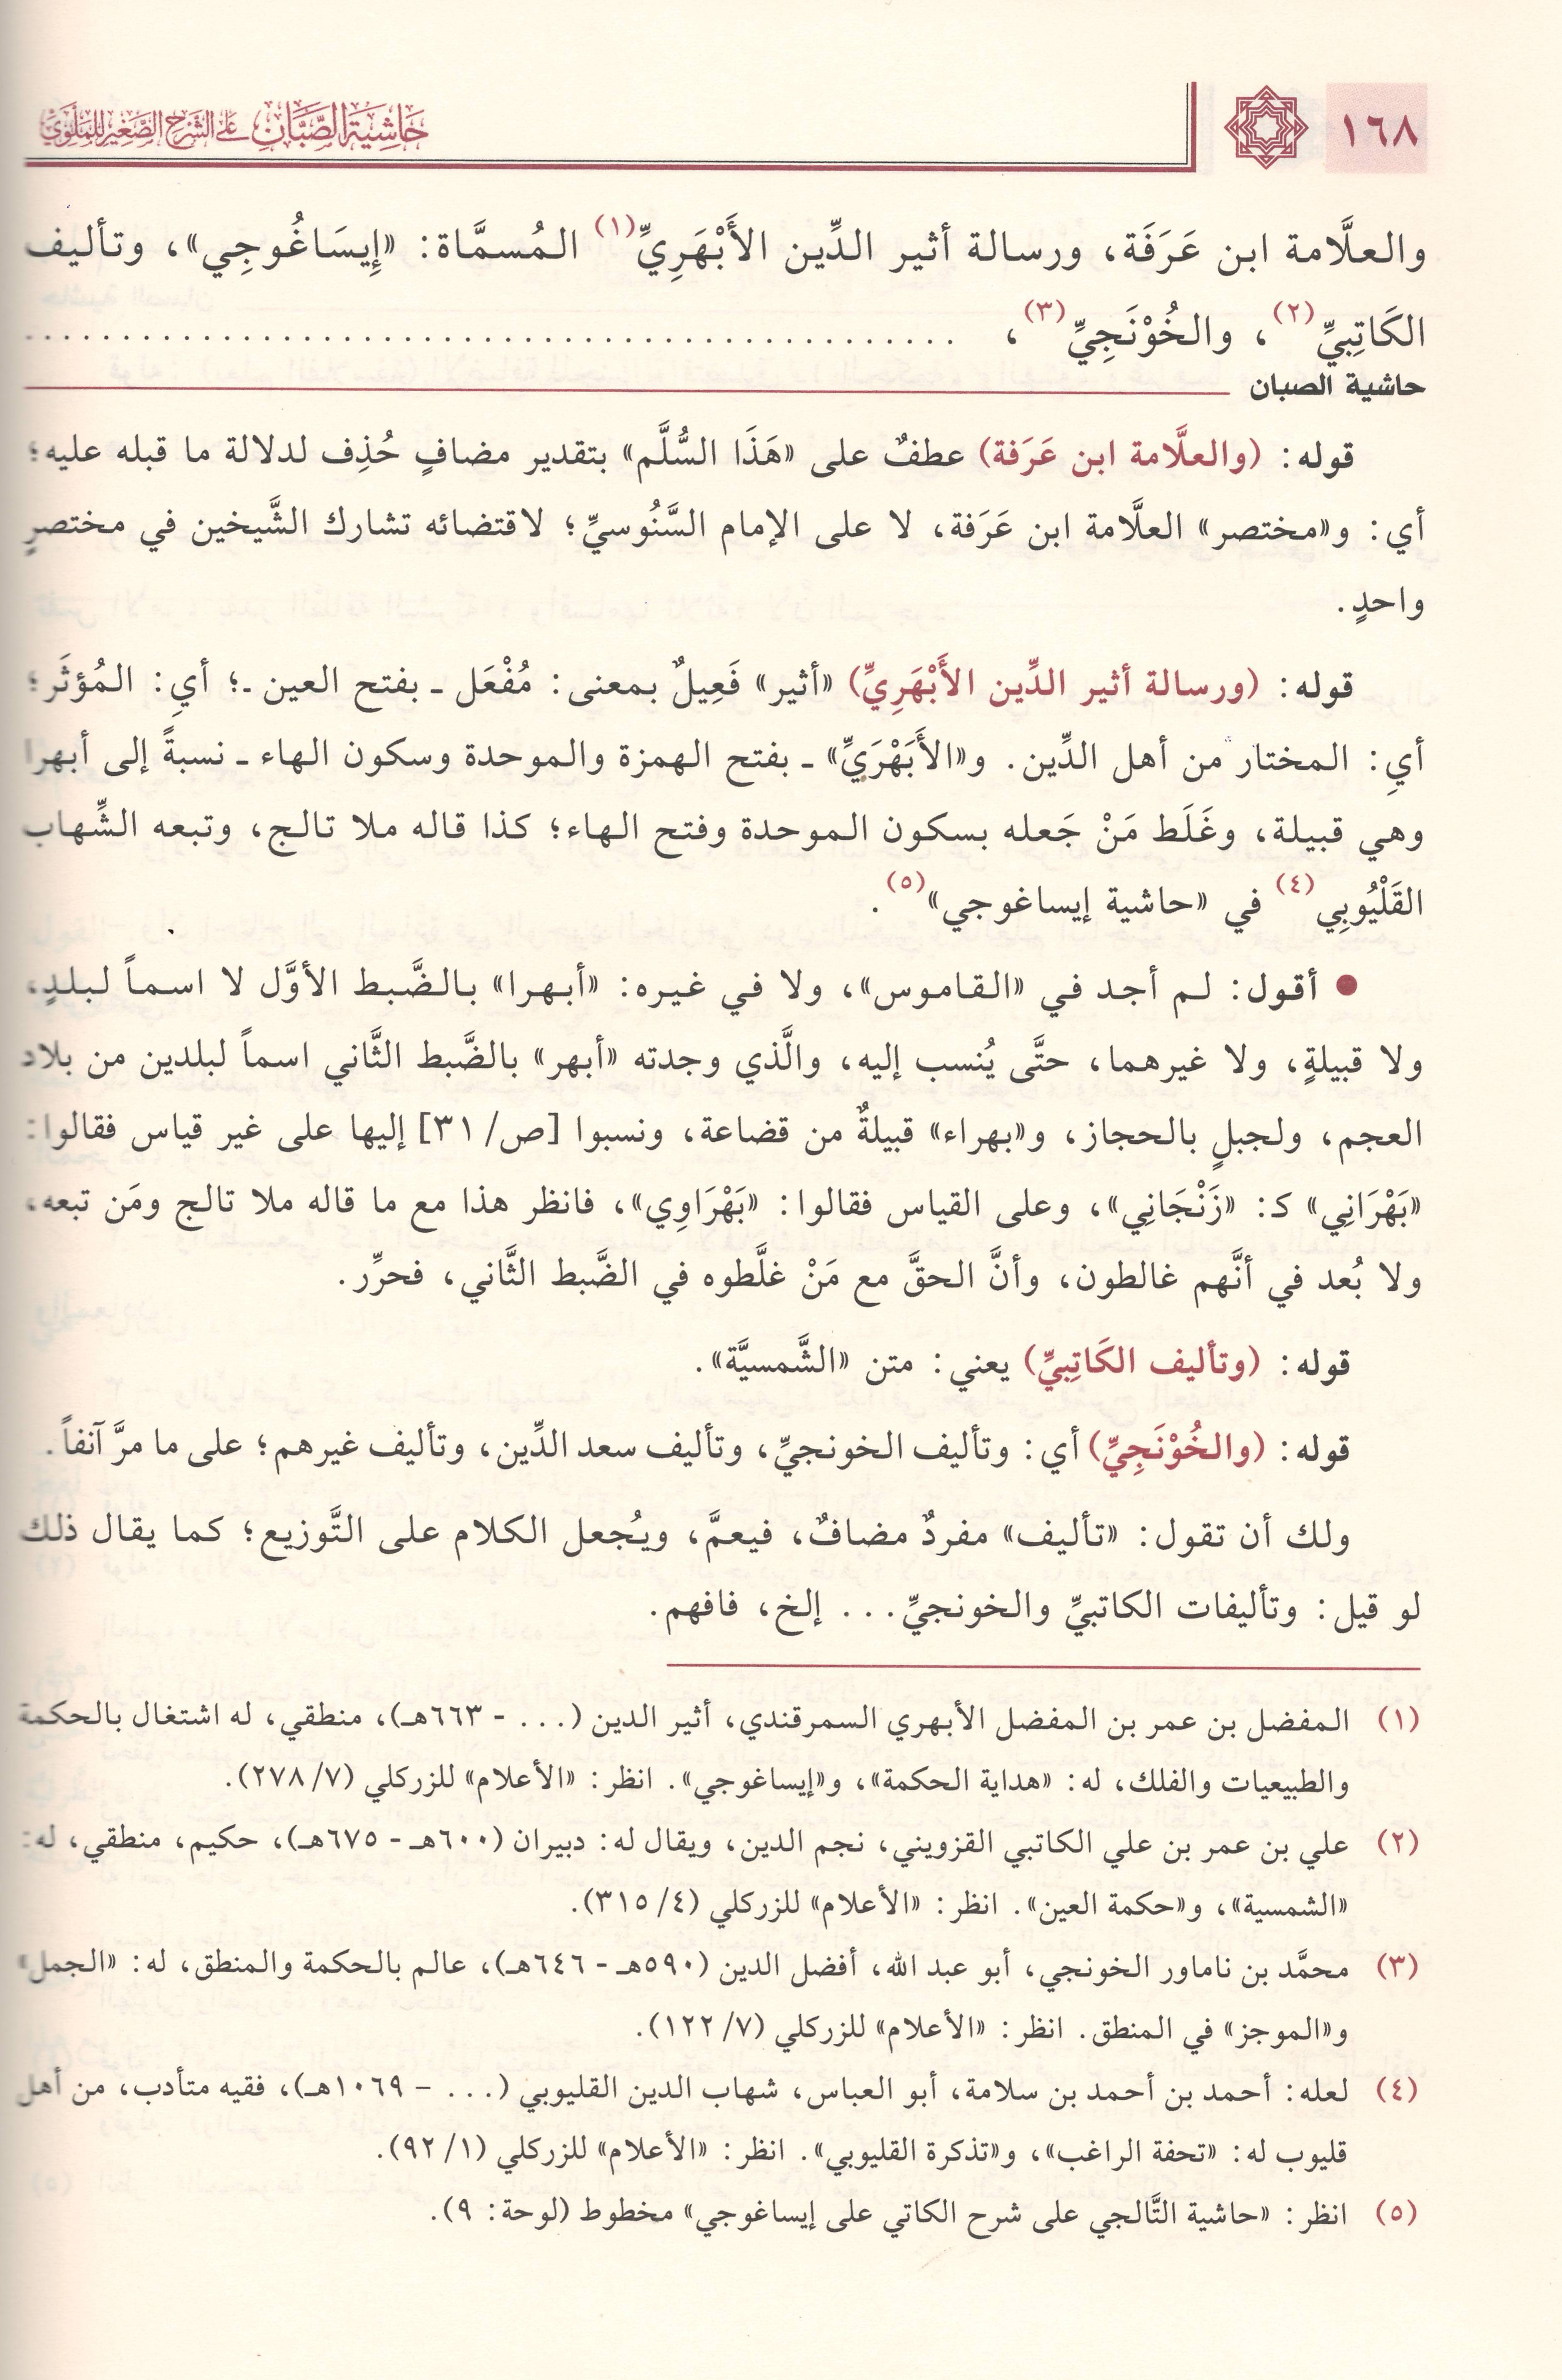 ١٦٨
حَاشِيَة الصَّبَّان عَلَى الشَّرْحِ الصَّغِيْر لِلمَلَّوِيّ
والعلَّامة ابن عَرَفَة، ورسالة أثير الدِّين الأَبْهَرِيِّ(١) المُسمَّاة: «إِيسَاغُوجِي»، وتأليف
الكَاتِبِيِّ(٢)، والخُوْنَجِيِّ(٣)، ..................................................
حاشية الصبان
قوله: (والعلَّامة ابن عَرَفة) عطفٌ على «هَذَا السُّلَّم» بتقدير مضافٍ حُذِف لدلالة ما قبله عليه؛
أي: و«مختصر» العلَّامة ابن عَرَفة، لا على الإمام السَّنُوسيِّ؛ لاقتضائه تشارك الشَّيخين في مختصرٍ
واحدٍ.
قوله: (ورسالة أثير الدِّين الأَبْهَرِيِّ) «أثير» فَعِيلٌ بمعنى: مُفْعَل ـ بفتح العين ـ؛ أي: المُؤثَر؛
أي: المختار من أهل الدِّين. و«الأَبَهْرَيِّ» ـ بفتح الهمزة والموحدة وسكون الهاء ـ نسبةً إلى أبهرا
وهي قبيلة، وغَلَط مَنْ جَعله بسكون الموحدة وفتح الهاء؛ كذا قاله ملا تالج، وتبعه الشِّهاب
القَلْيُوبِي(٤) في «حاشية إيساغوجي»(٥).
● أقول: لم أجد في «القاموس»، ولا في غيره: «أبهرا» بالضَّبط الأوَّل لا اسماً لبلدٍ،
ولا قبيلةٍ، ولا غيرهما، حتَّى يُنسب إليه، والَّذي وجدته «أبهر» بالضَّبط الثَّاني اسماً لبلدين من بلاد
العجم، ولجبلٍ بالحجاز، و«بهراء» قبيلةٌ من قضاعة، ونسبوا [ص/ ٣١] إليها على غير قياس فقالوا:
«بَهْرَانِي» كـ: «زَنْجَانِي»، وعلى القياس فقالوا: «بَهْرَاوِي»، فانظر هذا مع ما قاله ملا تالج ومَن تبعه،
ولا بُعد في أنَّهم غالطون، وأنَّ الحقَّ مع مَنْ غلَّطوه في الضَّبط الثَّاني، فحرِّر.
قوله: (وتأليف الكَاتِبيِّ) يعني: متن «الشَّمسيَّة».
قوله: (والخُوْنَجِيِّ) أي: وتأليف الخونجيِّ، وتأليف سعد الدِّين، وتأليف غيرهم؛ على ما مرَّ آنفاً.
ولك أن تقول: «تأليف» مفردٌ مضافٌ، فيعمَّ، ويُجعل الكلام على التَّوزيع؛ كما يقال ذلك
لو قيل: وتأليفات الكاتبيِّ والخونجيِّ... إلخ، فافهم.
(١) المفضل بن عمر بن المفضل الأبهري السمرقندي، أثير الدين (... - ٦٦٣هـ)، منطقي، له اشتغال بالحكمة
والطبيعيات والفلك، له: «هداية الحكمة»، و«إيساغوجي». انظر: «الأعلام» للزركلي (٧/ ٢٧٨).
(٢) علي بن عمر بن علي الكاتبي القزويني، نجم الدين، ويقال له: دبيران (٦٠٠هـ - ٦٧٥هـ)، حكيم، منطقي، له:
«الشمسية»، و«حكمة العين». انظر: «الأعلام» للزركلي (٤/ ٣١٥).
(٣) محمَّد بن ناماور الخونجي، أبو عبد الله، أفضل الدين (٥٩٠هـ - ٦٤٦هـ)، عالم بالحكمة والمنطق، له: «الجمل»
و«الموجز» في المنطق. انظر: «الأعلام» للزركلي (٧/ ١٢٢).
(٤) لعله: أحمد بن أحمد بن سلامة، أبو العباس، شهاب الدين القليوبي (... - ١٠٦٩هـ)، فقيه متأدب، من أهل
قليوب له: «تحفة الراغب»، و«تذكرة القليوبي». انظر: «الأعلام» للزركلي (١/ ٩٢).
(٥) انظر: «حاشية التَّالجي على شرح الكاتي على إيساغوجي» مخطوط (لوحة: ٩).